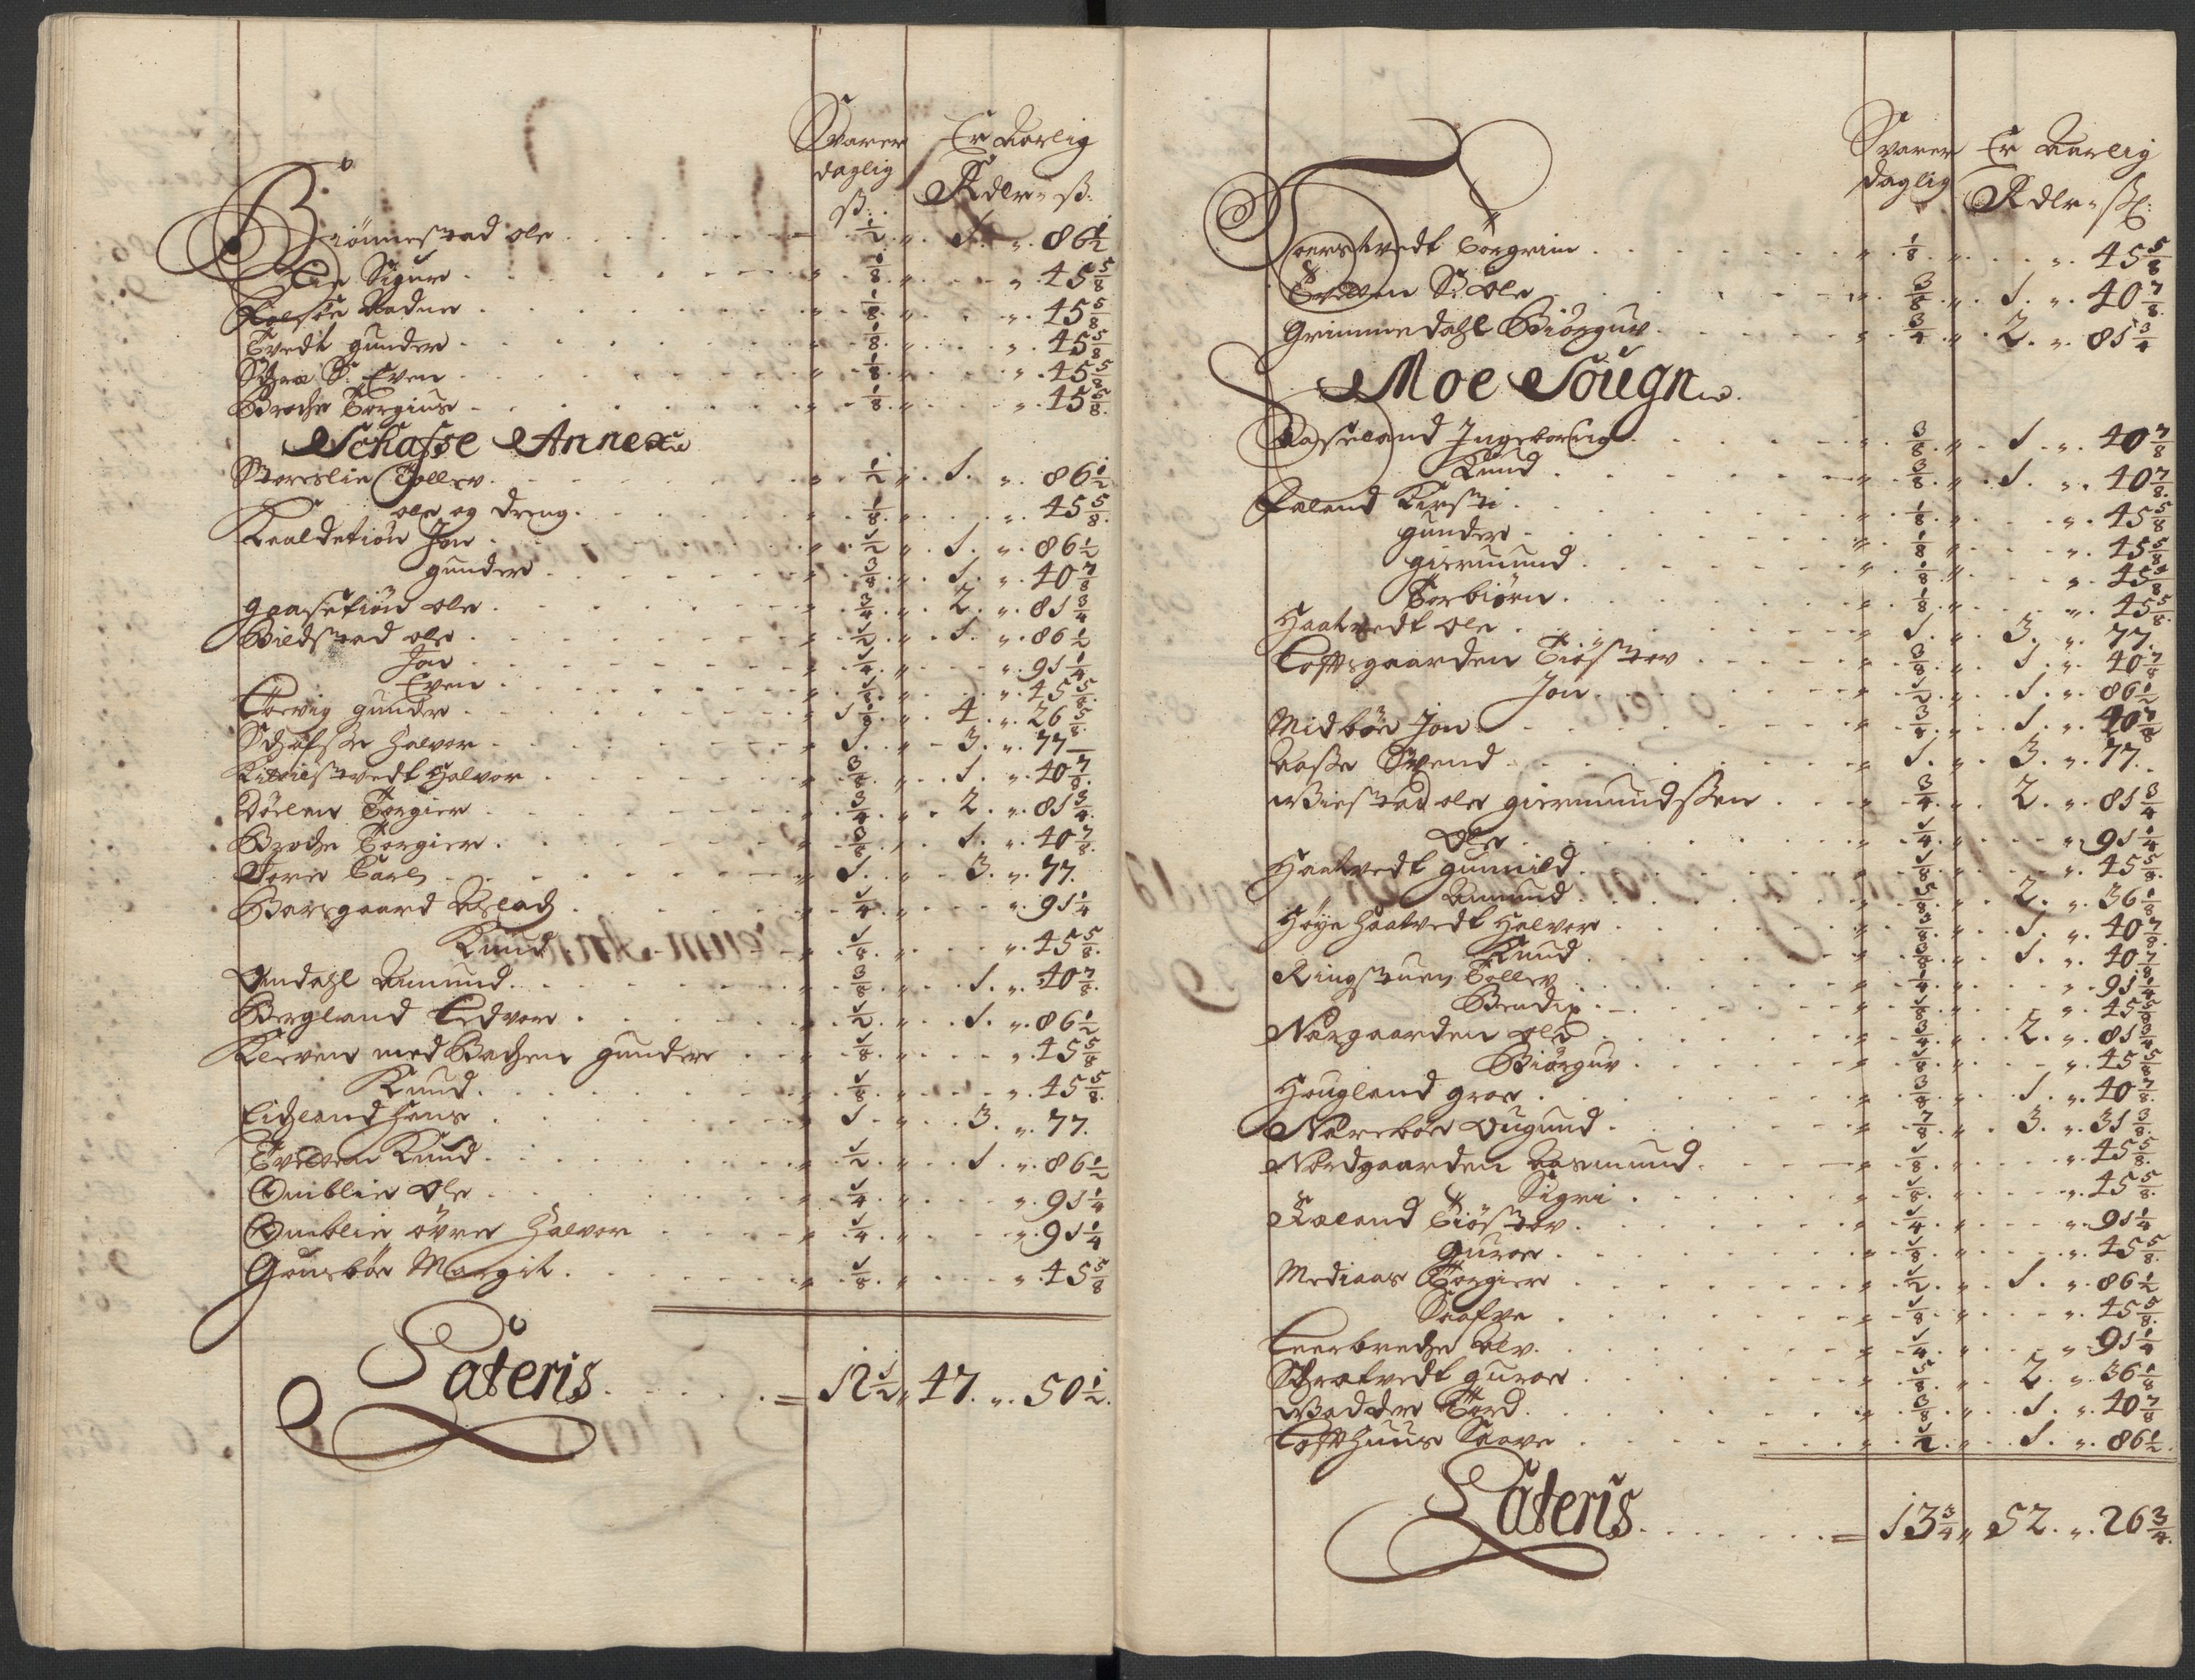 Svarer Er Aarlig
daglig
ß: Rdlr " ß:
Biönnestad Ole 1/2 " 1. " 86 1/2
Lie Sigur 1/8 " " 45 5/8
Aadne 1/8 " " 45 5/8
Tvedt gunder 1/8 " " 45 5/8
Even 1/8 " " 45 5/8
Broche Torgius 1/8 " " 45 5/8
Schafse Annex
Storeslie Tollev 1/2 " 1. " 86 1/2
Ole og dreng 1/8 " " 45 5/8
Jon 1/2 " 1. " 86 1/2
gunder 3/8 " 1. " 40 7/8
gaasetiön Ole 3/4 " 2. " 81 3/4
Bildstad Ole 1/2 " 1. " 86 1/2
Jon 1/4 " " 91 1/4
Even 1/8 " " 45 5/8
gunder 1 1/8 " 4. " 26 5/8
Schafsse Halvor 1. " 3. " 77
Halvor 3/8 " 1. " 40 7/8
Dölen Torgier 3/4 " 2. " 81 3/4
Broche Torgier 3/8 " 1. " 40 7/8
Carl 1. " 3. " 77.
Aslach 1/4 " " 91 1/4
Knud 1/8 " " 45 5/8
Omdahl Amund 3/8 " 1. " 40 7/8
Bergland Ledvor 1/2 " 1. " 86 1/2
Kleven med Bachen gunder 1/8 " " 45 5/8
Knud 1/8 " " 45 5/8
Eichland Hans 1. " 3. " 77.
Tveten Knud 1/2 " 1. " 86 1/2
Quiblie Ole 1/4 " " 91 1/4
Quiblie övre Halvor 1/4 " " 91 1/4
Margit 1/8 " " 45 5/8
Lateris = 12 1/2 " 47. " 50 1/2.
Svarer Er Aarlig
daglig Rdlr " ß:
Torgrim 1/8 " " 45 5/8
Ole 3/8 " 1. " 40 7/8
Grimmedahl Biörguv 3/4 " 2. " 81 3/4
Moe Sougn
Aaseland Ingeborg 3/8 " 1. " 40 7/8
Knud 3/8 " 1. " 40 7/8
Kirsti 1/8 " " 45 5/8
gunder 1/8 " " 45 5/8
giermund 1/8 " " 45 5/8
Torbiörn 1/8 " " 45 5/8
Haatvedt Ole 1. " 3. " 77.
Lofftsgaarden Tiöstov 3/8 " 1. " 40 7/8
Jon 1/2 " 1. " 86 1/2
Midböe Jon 3/8 " 1. " 40 7/8
Aasse Svend 1. " 3. " 77.
Ole giermundssen 3/4 " 2. " 81 3/4
Ole 1/4 " " 91 1/4
Haatvedt gunnild 1/8 " " 45 5/8
Amund 5/8 " 2. " 36 1/8
Höye Haatvedt Halvor 3/8 " 1. " 40 7/8
Knud 3/8 " 1. " 40 7/8
Ringstuen Tollev 1/4 " " 91 1/4
Bendix 1/8 " " 45 5/8
Norgaarden Ole 3/4 " 2. " 81 3/4
Biörguv 1/8 " " 45 5/8
Hougland groe 3/8 " 1. " 40 7/8
Nöreböe Ougund 7/8 " 3. " 31 3/8
Nordgaarden Aasmund 1/8 " " 45 5/8
Sigri 1/8 " " 45 5/8
Tiöstov 1/4 " " 91 1/4
guroe 1/8 " " 45 5/8
Mediaas Torgier 1/2 " 1. " 86 1/2
1/8 " " 45 5/8
Leerbreche Olv 1/4 " " 91 1/4
guroe 5/8 " 2. " 36 1/8
Vadder Tord 3/8 " 1. " 40 7/8
Loffthuus Saave 1/2 " 1. " 86 1/2
Lateris = 13 3/4 " 52. " 26 3/4.